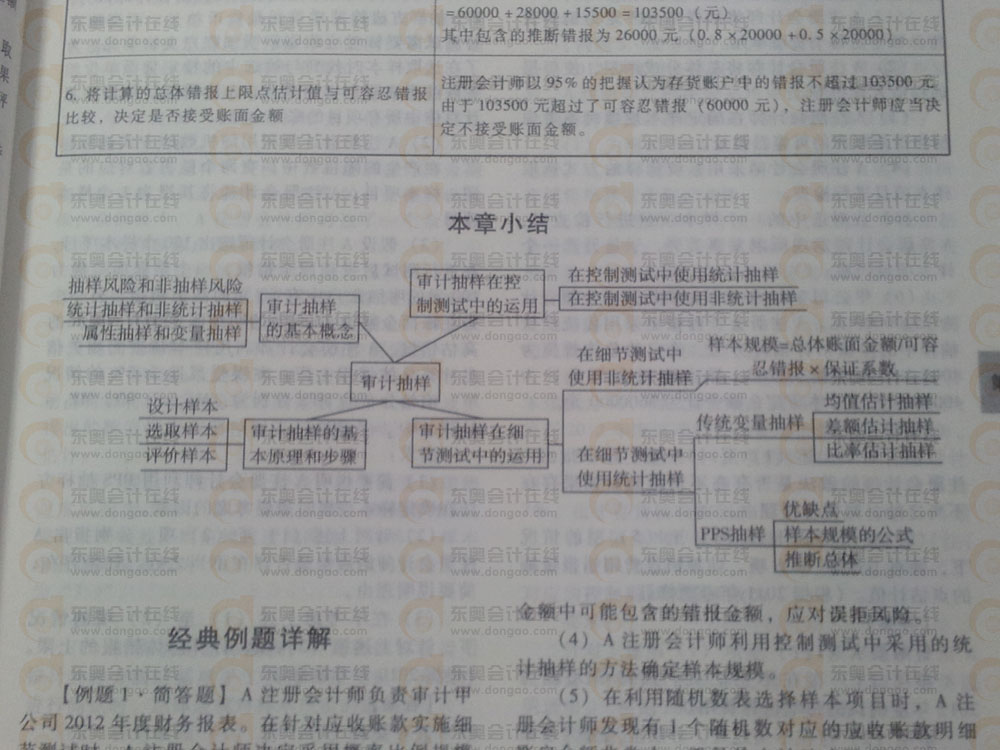 =60000+28000+15500=103500（元）
其中包含的推断错报为 26000 元（0.8×20000+0.5×20000）
6. 将计算的总体错报上限点估计值与可容忍错报
比较，决定是否接受账面金额
注册会计师以 95% 的把握认为存货账户中的错报不超过 103500 元
由于 103500 元超过了可容忍错报（60000 元），注册会计师应当决
定不接受账面金额。
本章小结
抽样风险和非抽样风险
统计抽样和非统计抽样
属性抽样和变量抽样
审计抽样
的基本概念
审计抽样在控
制测试中的运用
在控制测试中使用统计抽样
在控制测试中使用非统计抽样
审计抽样
设计样本
选取样本
评价样本
审计抽样的基
本原理和步骤
审计抽样在细
节测试中的运用
在细节测试中
使用非统计抽样
样本规模=总体账面金额/可容
忍错报×保证系数
在细节测试中
使用统计抽样
传统变量抽样
均值估计抽样
差额估计抽样
比率估计抽样
PPS抽样
优缺点
样本规模的公式
推断总体
经典例题详解
【例题 1·简答题】A 注册会计师负责审计甲
公司 2012 年度财务报表。在针对应收账款实施细
节测试时，A 注册会计师决定采用概率比例规模
金额中可能包含的错报金额，应对误拒风险。
（4）A 注册会计师利用控制测试中采用的统
计抽样的方法确定样本规模。
（5）在利用随机数表选择样本项目时，A 注
册会计师发现有 1 个随机数对应的应收账款明细
东奥会计在线
www.dongao.com